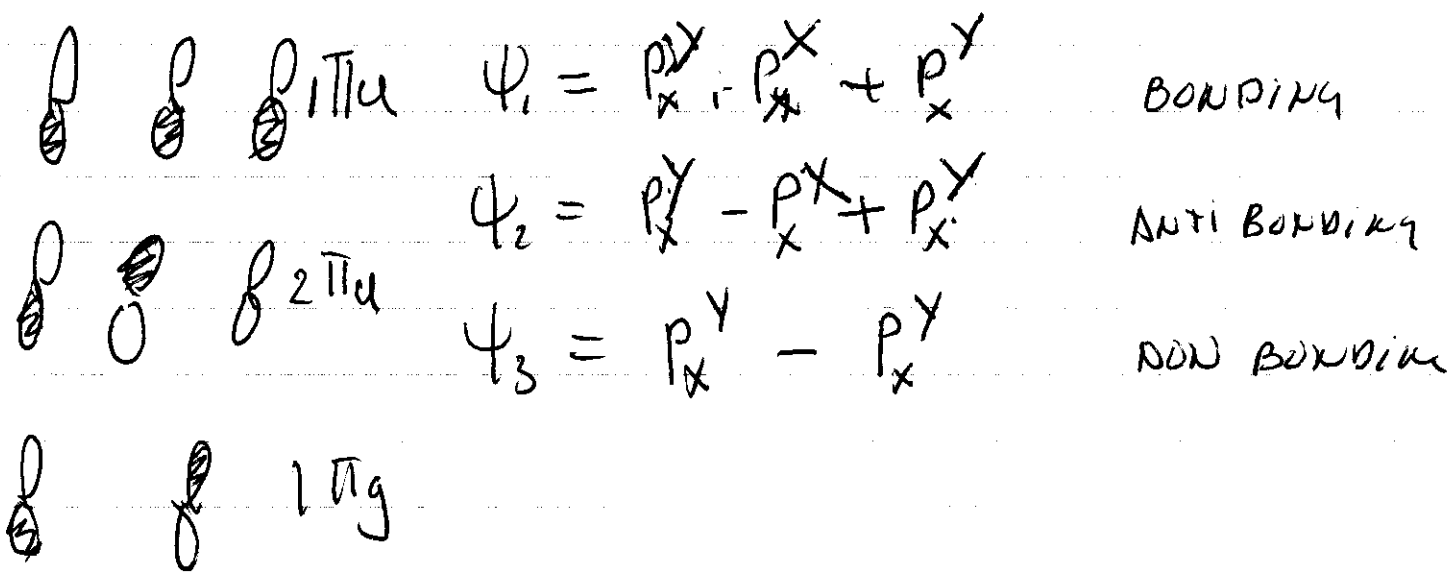 1Πu ψ₁ = Pₓʸ + Pₓˣ + Pₓʸ BONDING
ψ₂ = Pₓʸ - Pₓˣ + Pₓʸ ANTI BONDING
2Πu
ψ₃ = Pₓʸ - Pₓʸ NON BONDING
1Πg